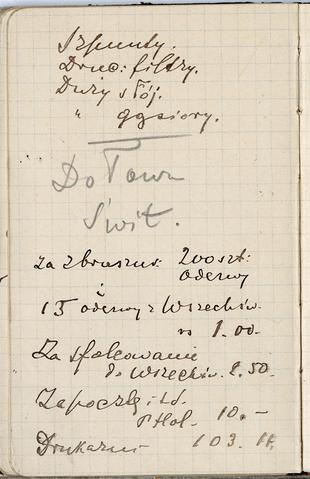 Szpunty.
Druc: filtry.
Duży słój.
" gąsiory.
Do Tow.
Świt.
Za zbroszur: 200 szt:
odezwy
i
15 odezwy z Wszechśw.
rs 1.00.
Za sfalcowanie
do Wszechśw. 2.50.
Za pocztę i t.d.
10.–
Drukarni 103. 11.